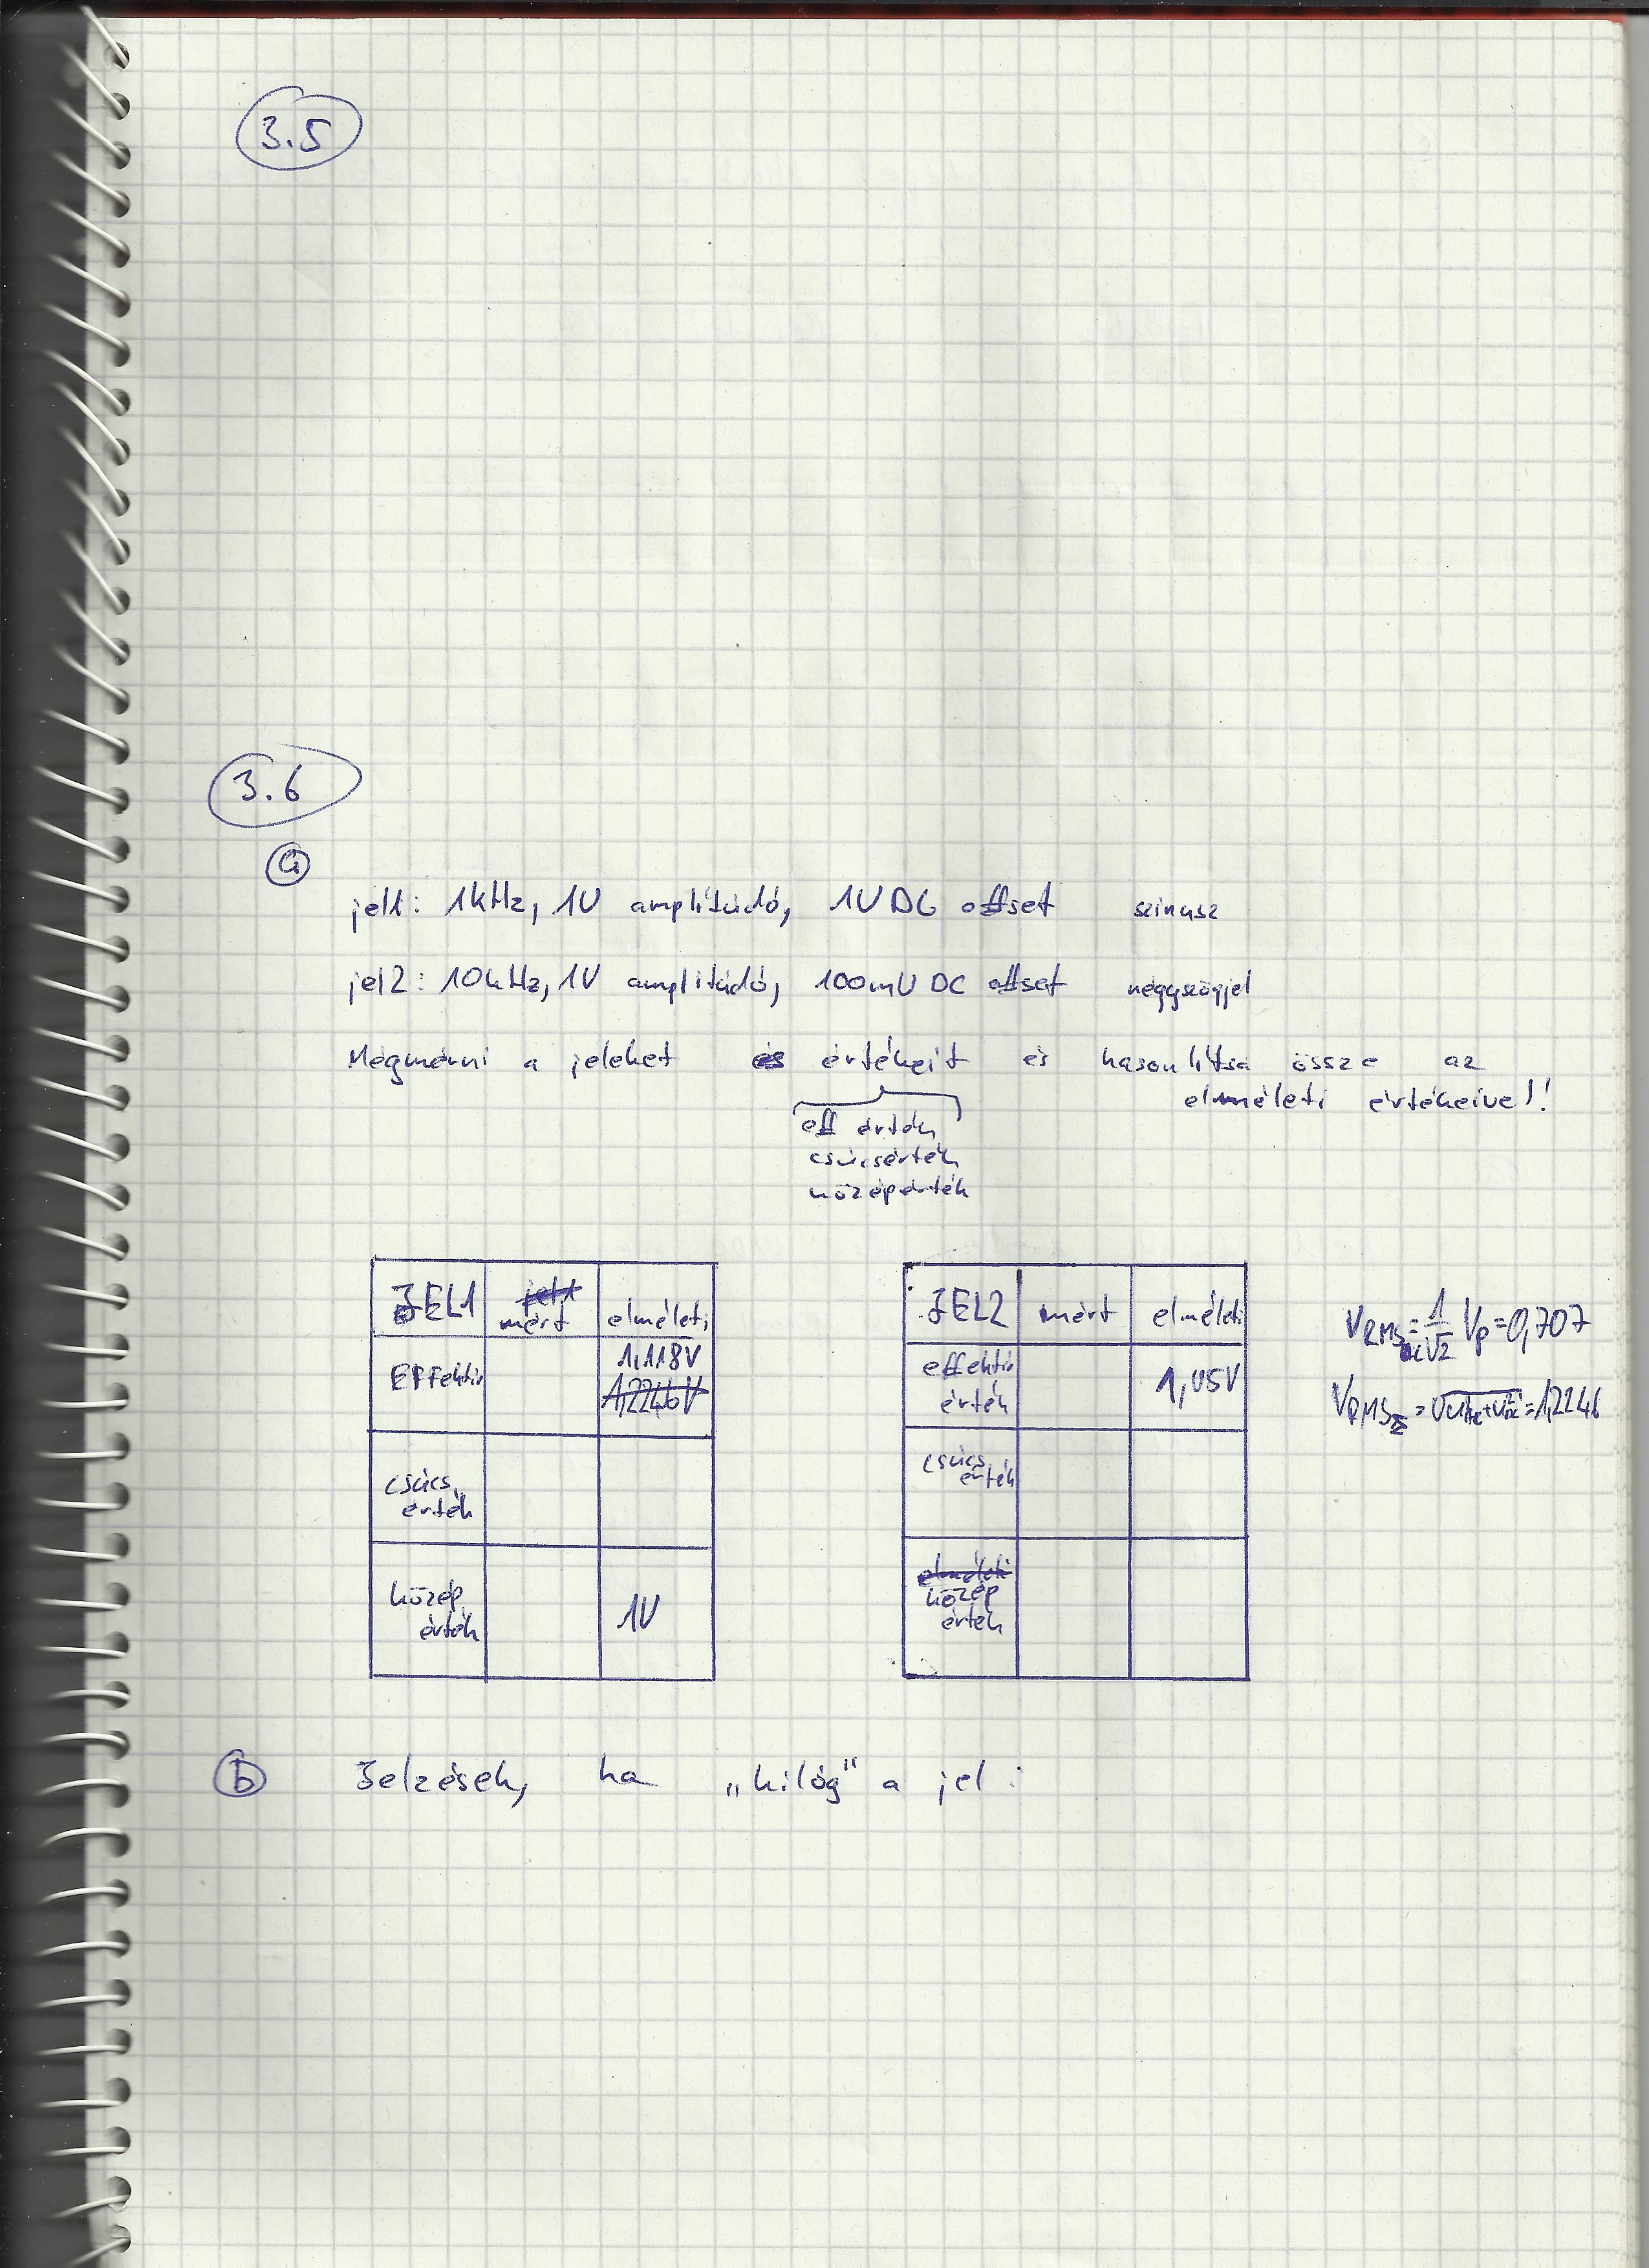 3.5
3.6
a
jel1: 1kHz, 1V amplítúdó, 1V DC offset szinusz
jel2: 10kHz, 1V amplitúdó, 100mV DC offset négyszögjel
Megmérni a jeleket értékeit és hasonlítsa össze az
elméleti értékeivel!
eff érték
csúcsérték
középérték
JEL1 mért elméleti
Effektív 1,118V
1,2246V
csúcs érték
közép érték 1V
JEL2 mért elméleti
effektív érték 1,05V
csúcs érték
elméleti
közép érték
VRMS = 1/√2 Vp = 0,707
VRMSΣ = √(U²AC+U²DC) = 1,2246
b Jelzések, ha „kilóg” a jel: